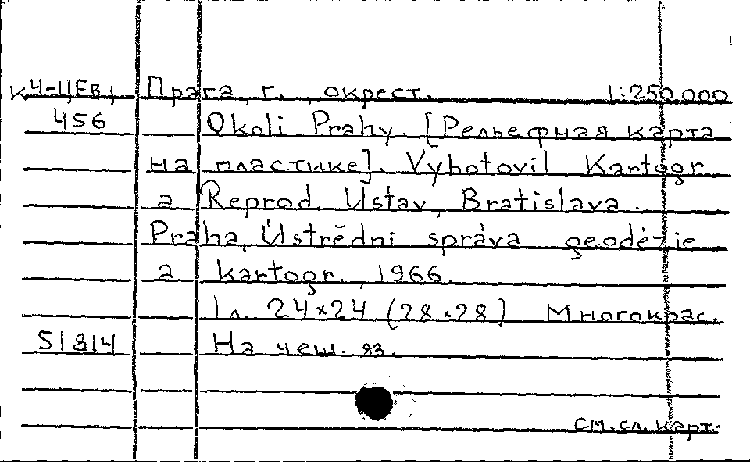 К4-ЦЕв, Прага, г., окрест. 1:250.000
456 Okoli Prahy. [Рельефная карта
на пластике]. Vyhotovil Kartogr.
a Reprod. Ústav, Bratislava.
Praha, Ústrědni správa geodézie
a kartogr., 1966.
1 л. 24×24 (28×28) Многокрас.
51814 На чеш. яз.
см. сл. карт.